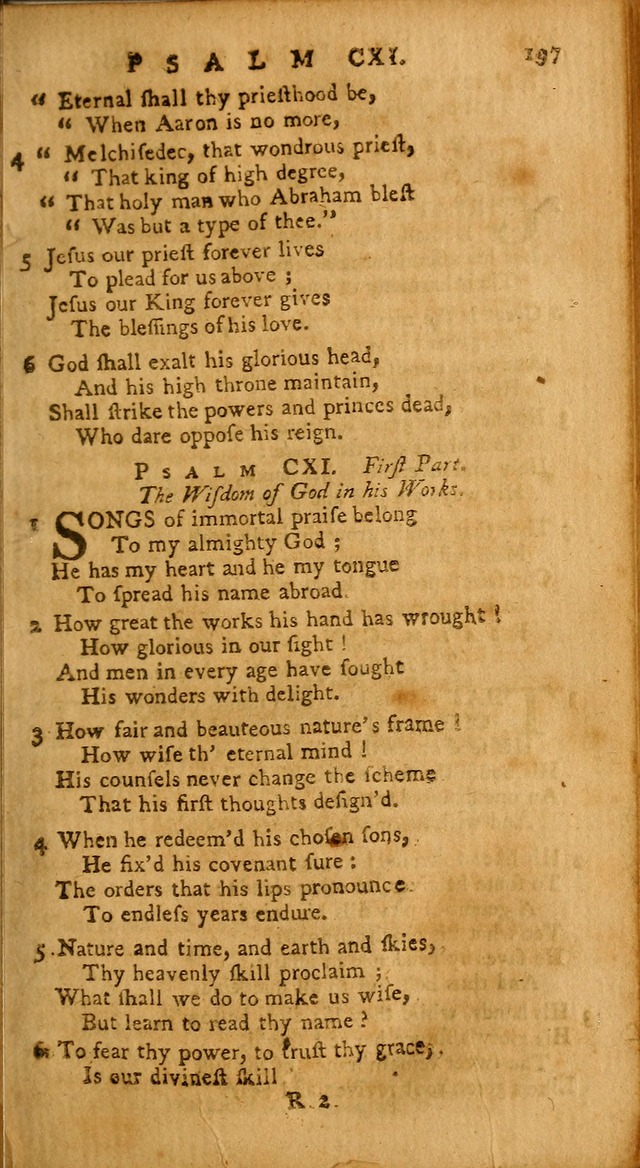 PSALM CXI. 197
“ Eternal ſhall thy prieſthood be,
“ When Aaron is no more,
4 “ Melchiſedec, that wondrous prieſt,
“ That king of high degree,
“ That holy man who Abraham bleſt
“ Was but a type of thee.”
5 Jeſus our prieſt forever lives
To plead for us above ;
Jeſus our King forever gives
The bleſſings of his love.
6 God ſhall exalt his glorious head,
And his high throne maintain,
Shall ſtrike the powers and princes dead,
Who dare oppoſe his reign.
PSALM CXI. Firſt Part.
The Wiſdom of God in his Works.
1 SONGS of immortal praiſe belong
To my almighty God ;
He has my heart and he my tongue
To ſpread his name abroad.
2 How great the works his hand has wrought !
How glorious in our ſight !
And men in every age have ſought
His wonders with delight.
3 How fair and beauteous nature's frame !
How wiſe th' eternal mind !
His counſels never change the ſcheme
That his firſt thoughts deſign'd.
4 When he redeem'd his choſen ſons,
He fix'd his covenant ſure :
The orders that his lips pronounce
To endleſs years endure.
5 .Nature and time, and earth and ſkies,
Thy heavenly ſkill proclaim ;
What ſhall we do to make us wiſe,
But learn to read thy name ?
6 To fear thy power, to truſt thy grace,
Is our divineſt ſkill
R 2.